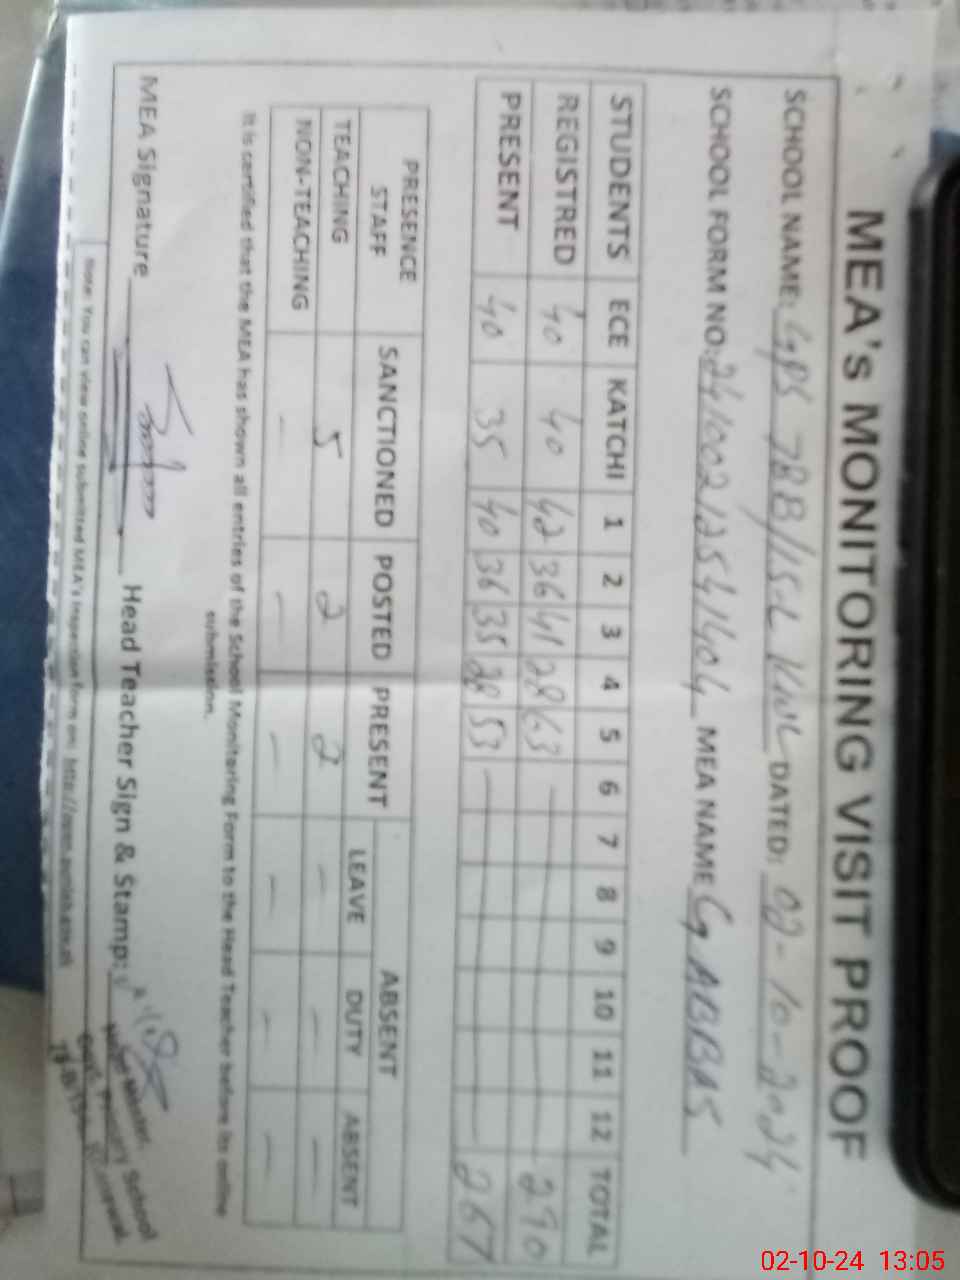 MEA's MONITORING VISIT PROOF
SCHOOL NAME: GPS 78B/15-L KWL DATED: 02-10-2024
SCHOOL FORM NO: 24100212541404 MEA NAME G ABBAS
STUDENTS ECE KATCHI 1 2 3 4 5 6 7 8 9 10 11 12 TOTAL
REGISTRED 40 40 42 36 41 28 63 290
PRESENT 40 35 40 36 35 28 53 267
PRESENCE STAFF SANCTIONED POSTED PRESENT ABSENT
LEAVE DUTY ABSENT
TEACHING 5 2 2 - - -
NON-TEACHING - - - - - -
It is certified that the MEA has shown all entries of the School Monitoring Form to the Head Teacher before its online
submission.
MEA Signature Head Teacher Sign & Stamp:
Head Master
Govt. Primary School
Note: You can view online submitted MEA's inspection form on: http://
02-10-24 13:05